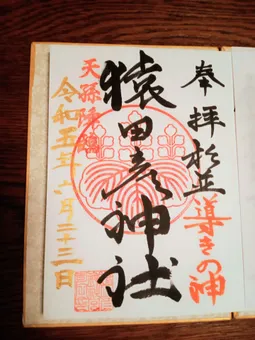 奉拝 杉並
導きの神
猿田彦神社
天孫降臨
令和五年六月二十三日